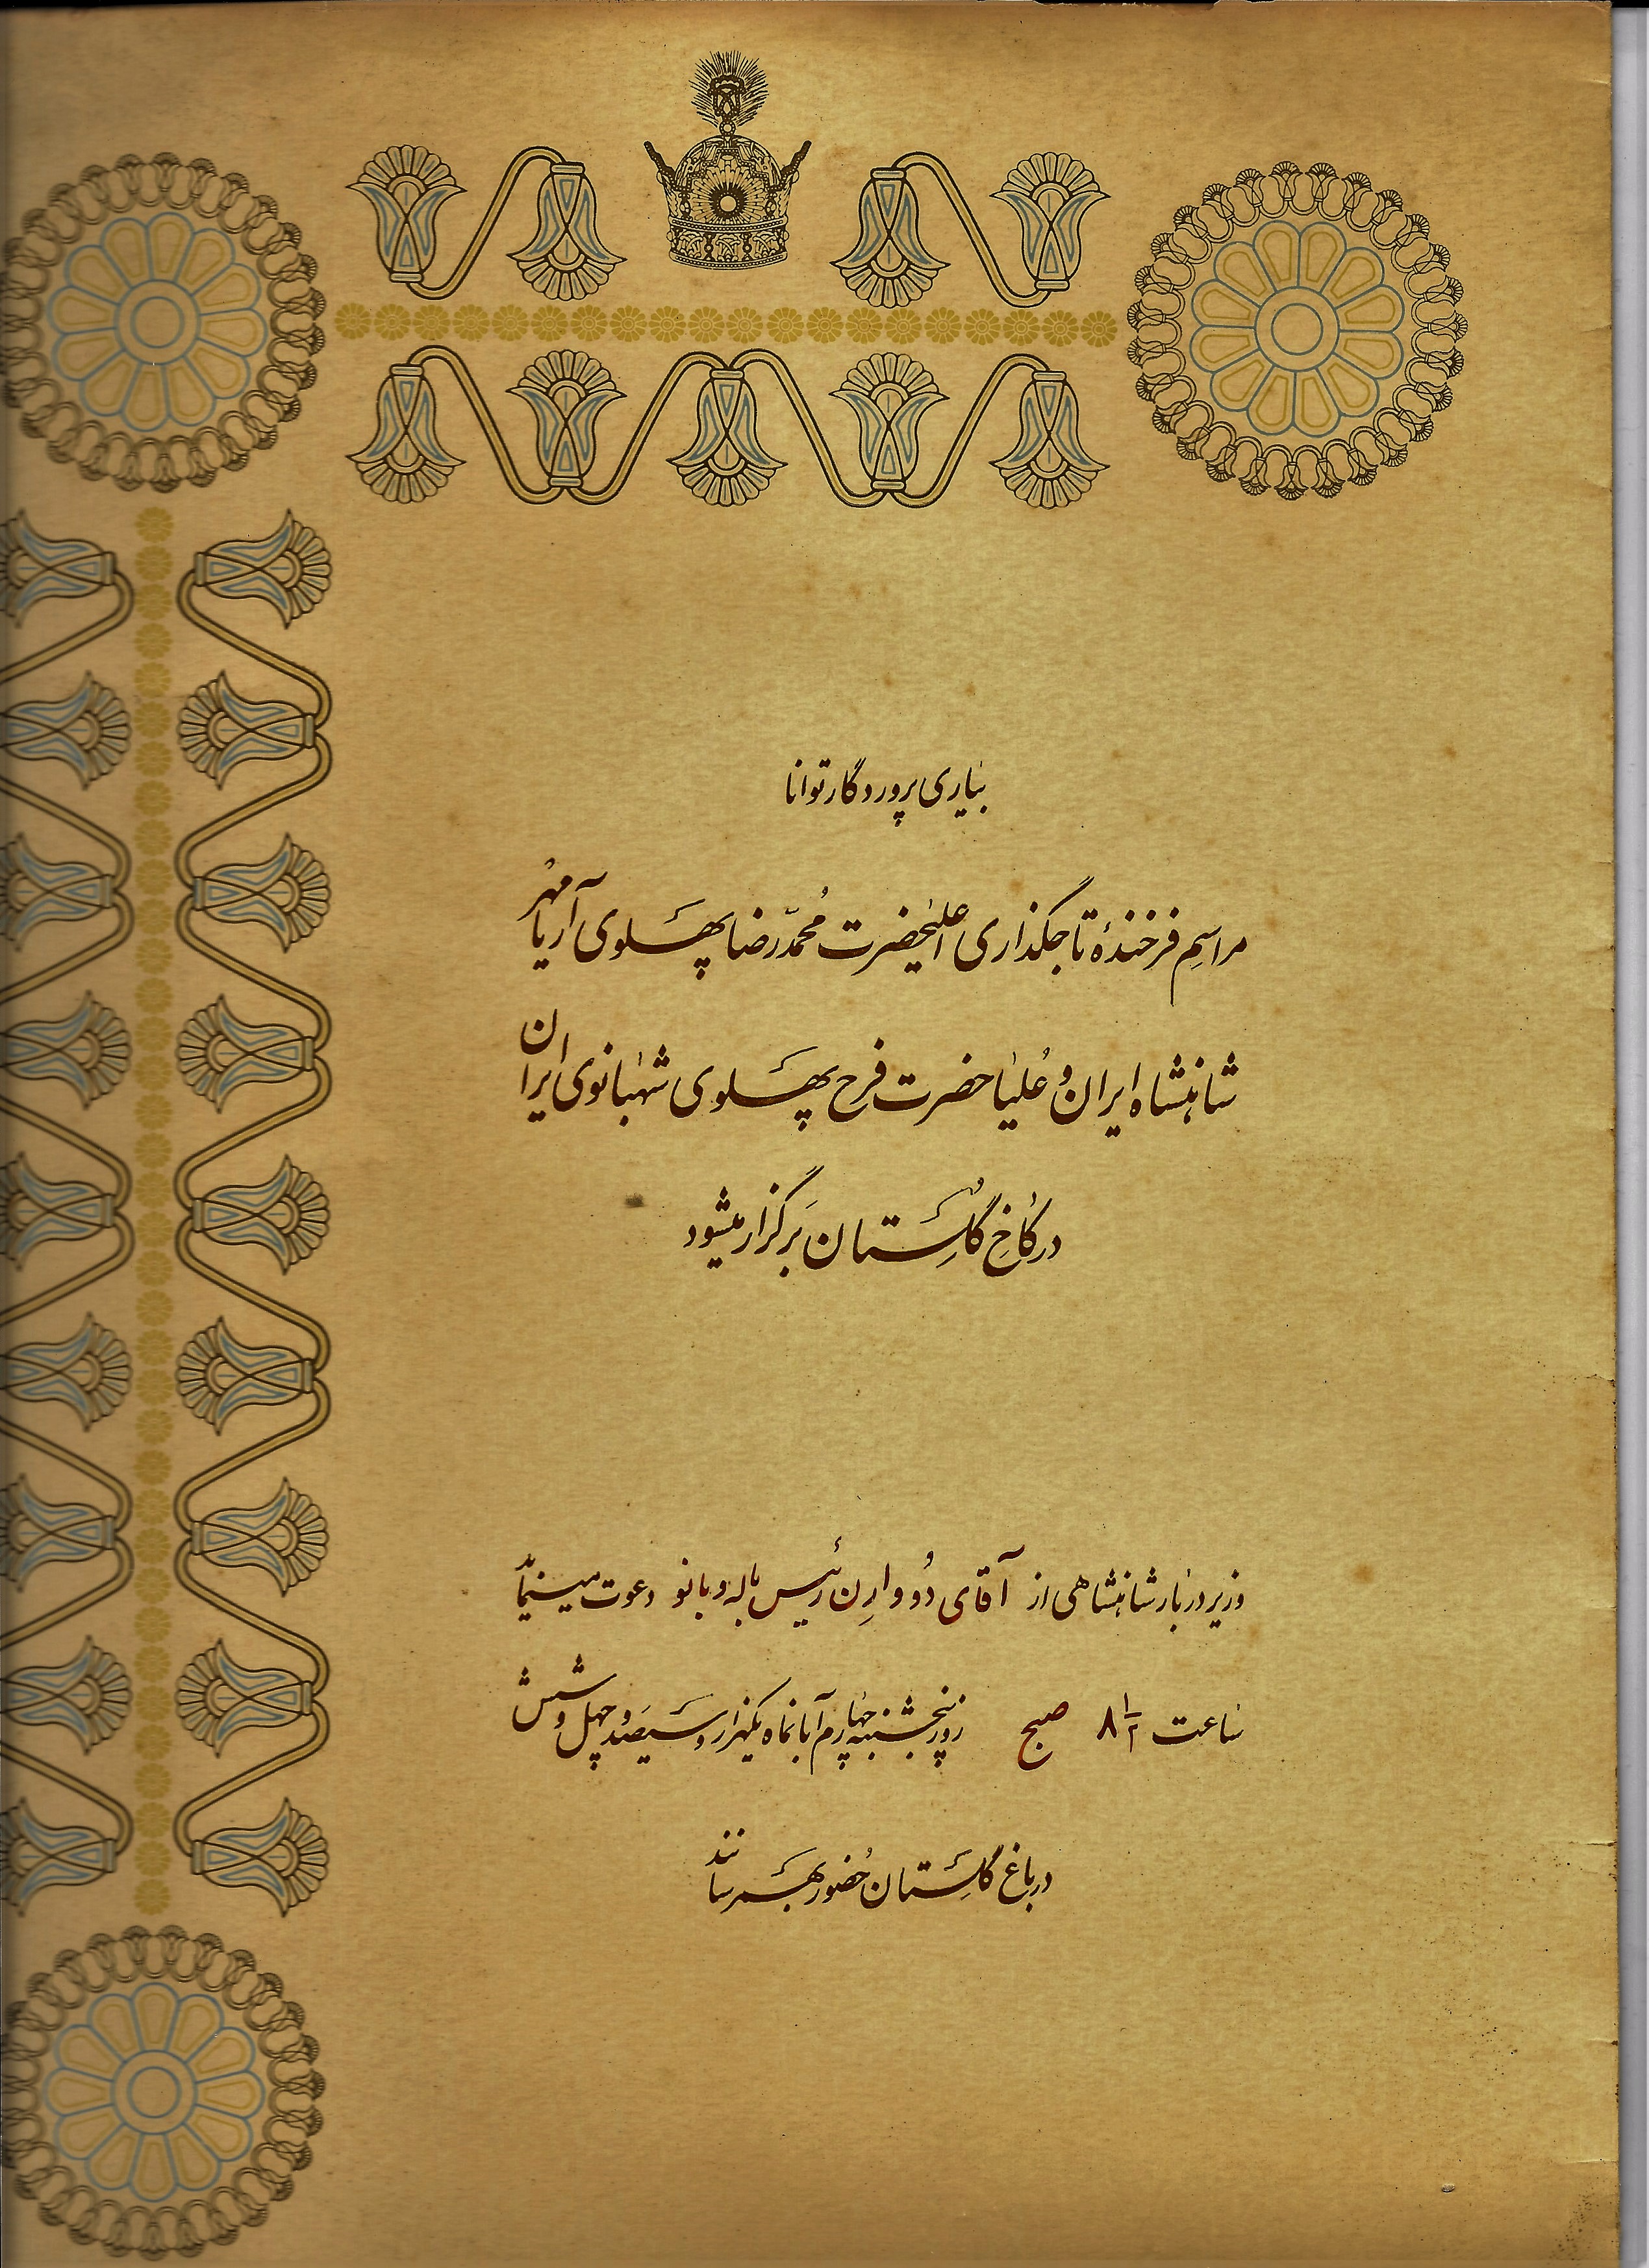 بیاری پروردگار توانا
مراسِم فرخندهٔ تاجگذاری اعلیحضرت مُحمّدرضا پهلوی آریامهر
شاهنشاه ایران و عُلیاحضرت فرح پهلوی شهبانوی ایران
در کاخِ گلِستان بَرگزار میشود
وزیر دربار شاهنشاهی از آقای دُو وارِن رئیس باله و بانو دعوت مینماید
ساعت ۸ ۱/۲ صبح روز پنجشنبه چهارم آبانماه یکهزار و سیصَد و چهل و شش
در باغ گلِستان حُضور بهمرسانند